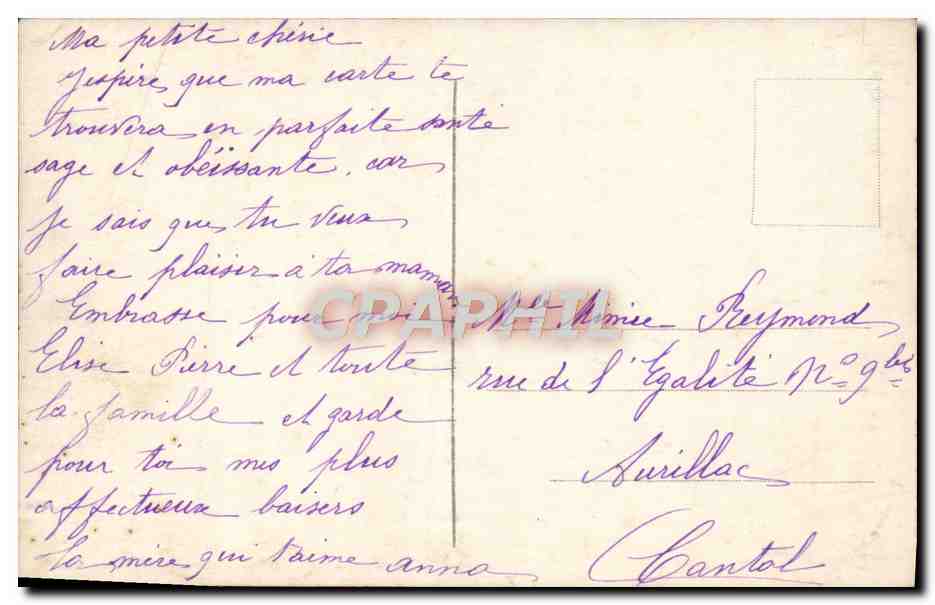 Ma petite chérie
J'espire que ma carte te
trouvera en parfaite santé
sage et obéissante. car
je sais que tu veux
faire plaisir à ta maman
Embrasse pour moi
Elise Pierre et toute
la famille et garde
pour toi mes plus
affectueux baisers
ta mère qui t'aime anna
CPAPHIL
Mlle Mimie Reymond
rue de l'Egalité No 9 bis
Aurillac
Cantal